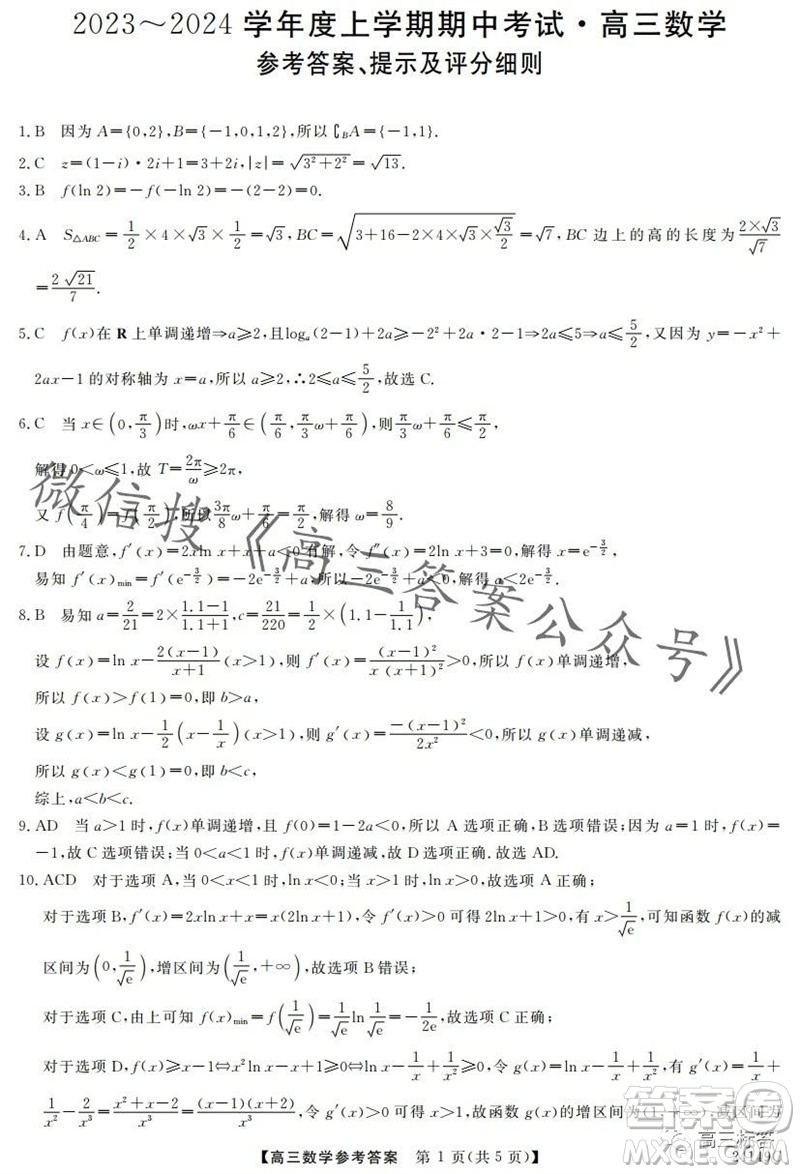 2023～2024 学年度上学期期中考试·高三数学
参考答案、提示及评分细则
1.B 因为 A={0,2},B={-1,0,1,2},所以 ∁_B A={-1,1}.
2.C z=(1-i)·2i+1=3+2i,|z|=√(3²+2²)=√13.
3.B f(ln 2)=-f(-ln 2)=-(2-2)=0.
4.A S△ABC=1/2×4×√3×1/2=√3,BC=√(3+16-2×4×√3×√3/2)=√7,BC 边上的高的长度为 2×√3/√7
=2√21/7.
5.C f(x)在 R 上单调递增⇒a≥2,且log_a(2-1)+2a≥-2²+2a·2-1⇒2a≤5⇒a≤5/2,又因为 y=-x²+
2ax-1 的对称轴为 x=a,所以 a≥2,∴2≤a≤5/2,故选 C.
6.C 当 x∈(0,π/3)时,ωx+π/6∈(π/6,π/3ω+π/6),则π/3ω+π/6≤π/2,
解得 0<ω≤1,故 T=2π/ω≥2π,
又 f(π/4)=f(π/2),所以3π/8ω+π/6=π/2,解得 ω=8/9.
7.D 由题意,f′(x)=2xln x+x+a<0有解,令 f″(x)=2ln x+3=0,解得 x=e^(-3/2),
易知 f′(x)min=f′(e^(-3/2))=-2e^(-3/2)+a<0,所以-2e^(-3/2)+a<0,解得 a<2e^(-3/2).
8.B 易知 a=2/21=2×(1.1-1)/(1.1+1),c=21/220=1/2×(1.1-1/1.1),
设 f(x)=ln x-2(x-1)/(x+1)(x>1),则 f′(x)=(x-1)²/(x(x+1)²)>0,所以 f(x)单调递增,
所以 f(x)>f(1)=0,即 b>a,
设 g(x)=ln x-1/2(x-1/x)(x>1),则 g′(x)=-(x-1)²/(2x²)<0,所以 g(x)单调递减,
所以 g(x)<g(1)=0,即 b<c,
综上,a<b<c.
9.AD 当 a>1 时,f(x)单调递增,且 f(0)=1-2a<0,所以 A 选项正确,B 选项错误;因为 a=1 时,f(x)=
-1,故 C 选项错误;当 0<a<1 时,f(x)单调递减,故 D 选项正确.故选 AD.
10.ACD 对于选项 A,当 0<x<1 时,ln x<0,可得 f(x)<0,故选项 A 正确;
对于选项 B,f′(x)=2xln x+x=x(2ln x+1),令 f′(x)>0 可得 2ln x+1>0,有 x>1/√e,可知函数 f(x)的减
区间为(0,1/√e),增区间为(1/√e,+∞),故选项 B 错误;
对于选项 C,由上可知 f(x)min=f(1/√e)=1/e ln 1/√e=-1/2e,故选项 C 正确;
对于选项 D,f(x)≥x-1⇔x²ln x-x+1≥0⇔ln x-1/x+1/x²≥0,令 g(x)=ln x-1/x+1/x²,有 g′(x)=
1/x+1/x²-2/x³=(x²+x-2)/x³=(x-1)(x+2)/x³,令 g′(x)>0,可得 x>1,故函数 g(x)的增区间为(1,+∞),减区间为
【高三数学参考答案 第 1 页(共 5 页)】
24149C
微信搜《高三答案公众号》
答案圈
MXQE.COM
高三标答